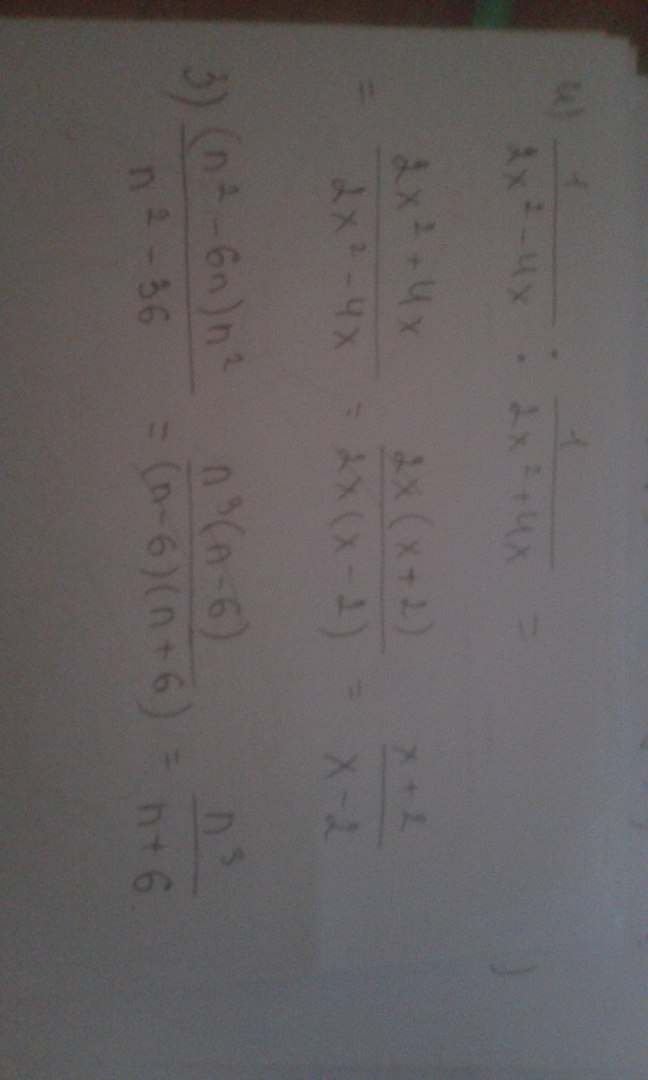 4) 1/(2x² - 4x) : 1/(2x² + 4x) =
= (2x² + 4x)/(2x² - 4x) = 2x(x+2)/2x(x-2) = (x+2)/(x-2)
3) (n² - 6n)n²/(n² - 36) = n³(n-6)/(n-6)(n+6) = n³/(n+6)